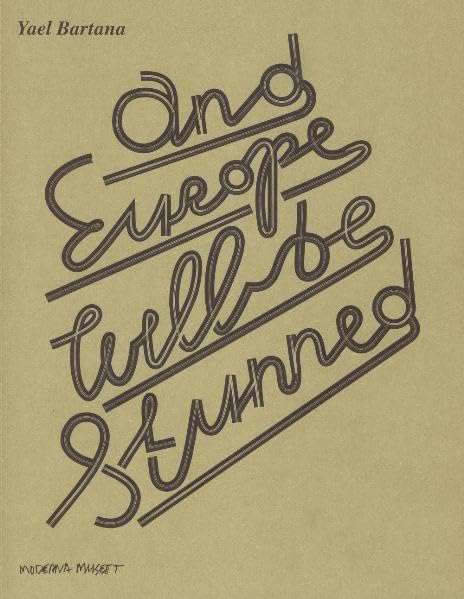 Yael Bartana
and
Europe
will be
Stunned
MODERNA MUSEET